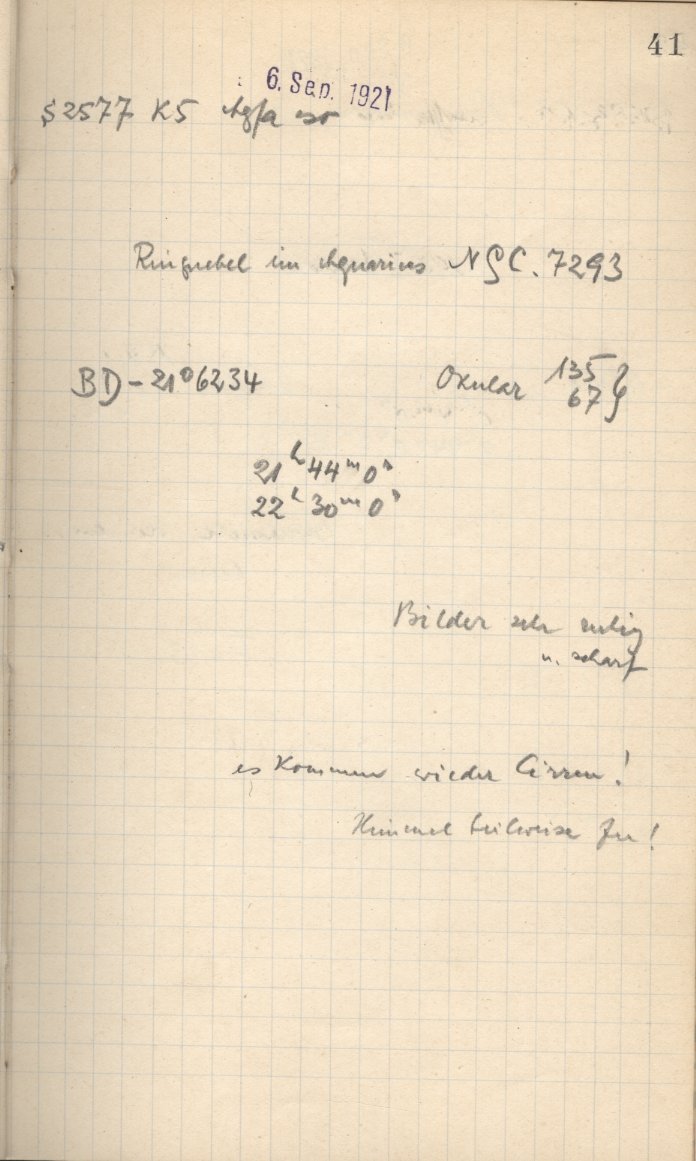 41
6. Sep. 1921
S 2577 K5 Agfa iso
Ringnebel im Aquarius NGC. 7293
BD - 21° 6234 Okular 135
67
21h 44m 0s
22h 30m 0s
Bilder sehr ruhig
u. scharf
es kommen wieder Cirren!
Himmel teilweise zu!